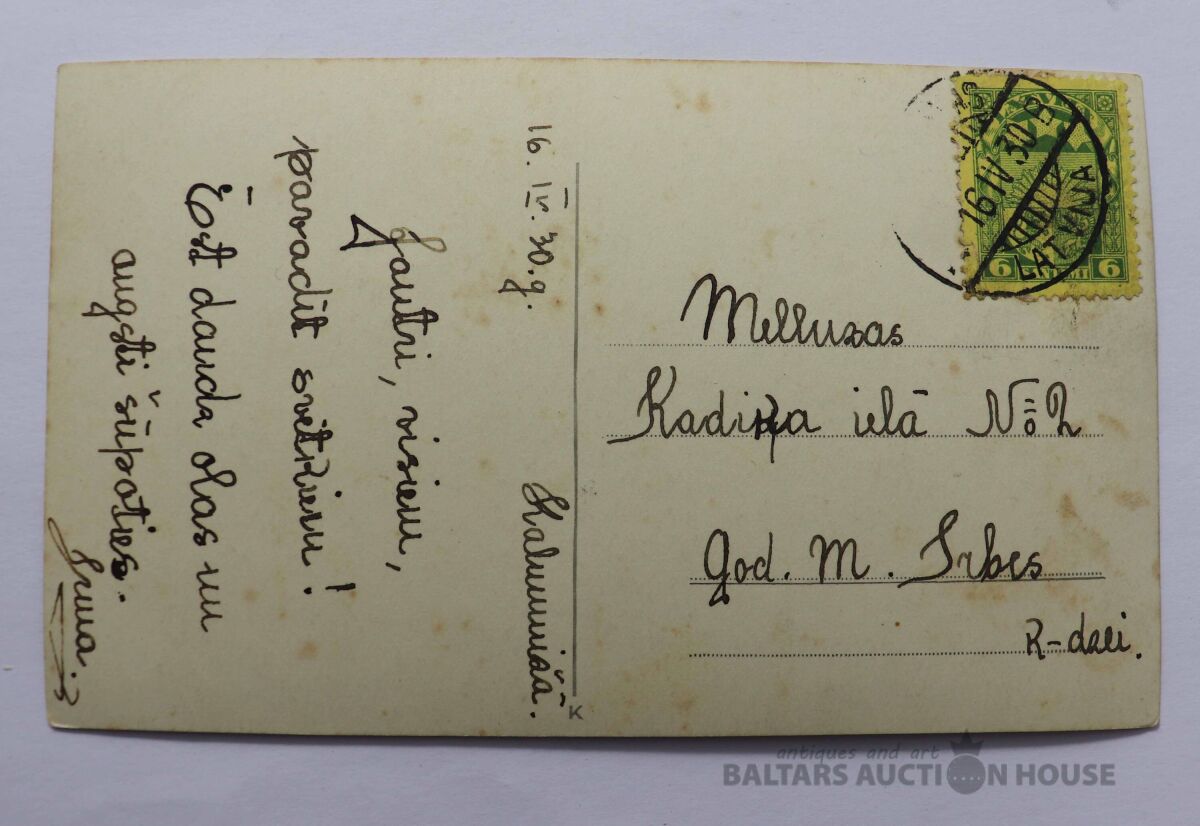 16. IV. 30. g.
Kalnmuižā.
Jautri, visiem,
pavadīt svētkus!
Ēst daudz olas un
augsti šūpoties.
Irma.
Melluzos
Kadiķa ielā № 2
god. M. Irbes
k-dzei.
16 IV 30 B
LATVIJA
LATVIJA
6 SANTIMI 6
K
antiques and art
BALTARS AUCTION HOUSE